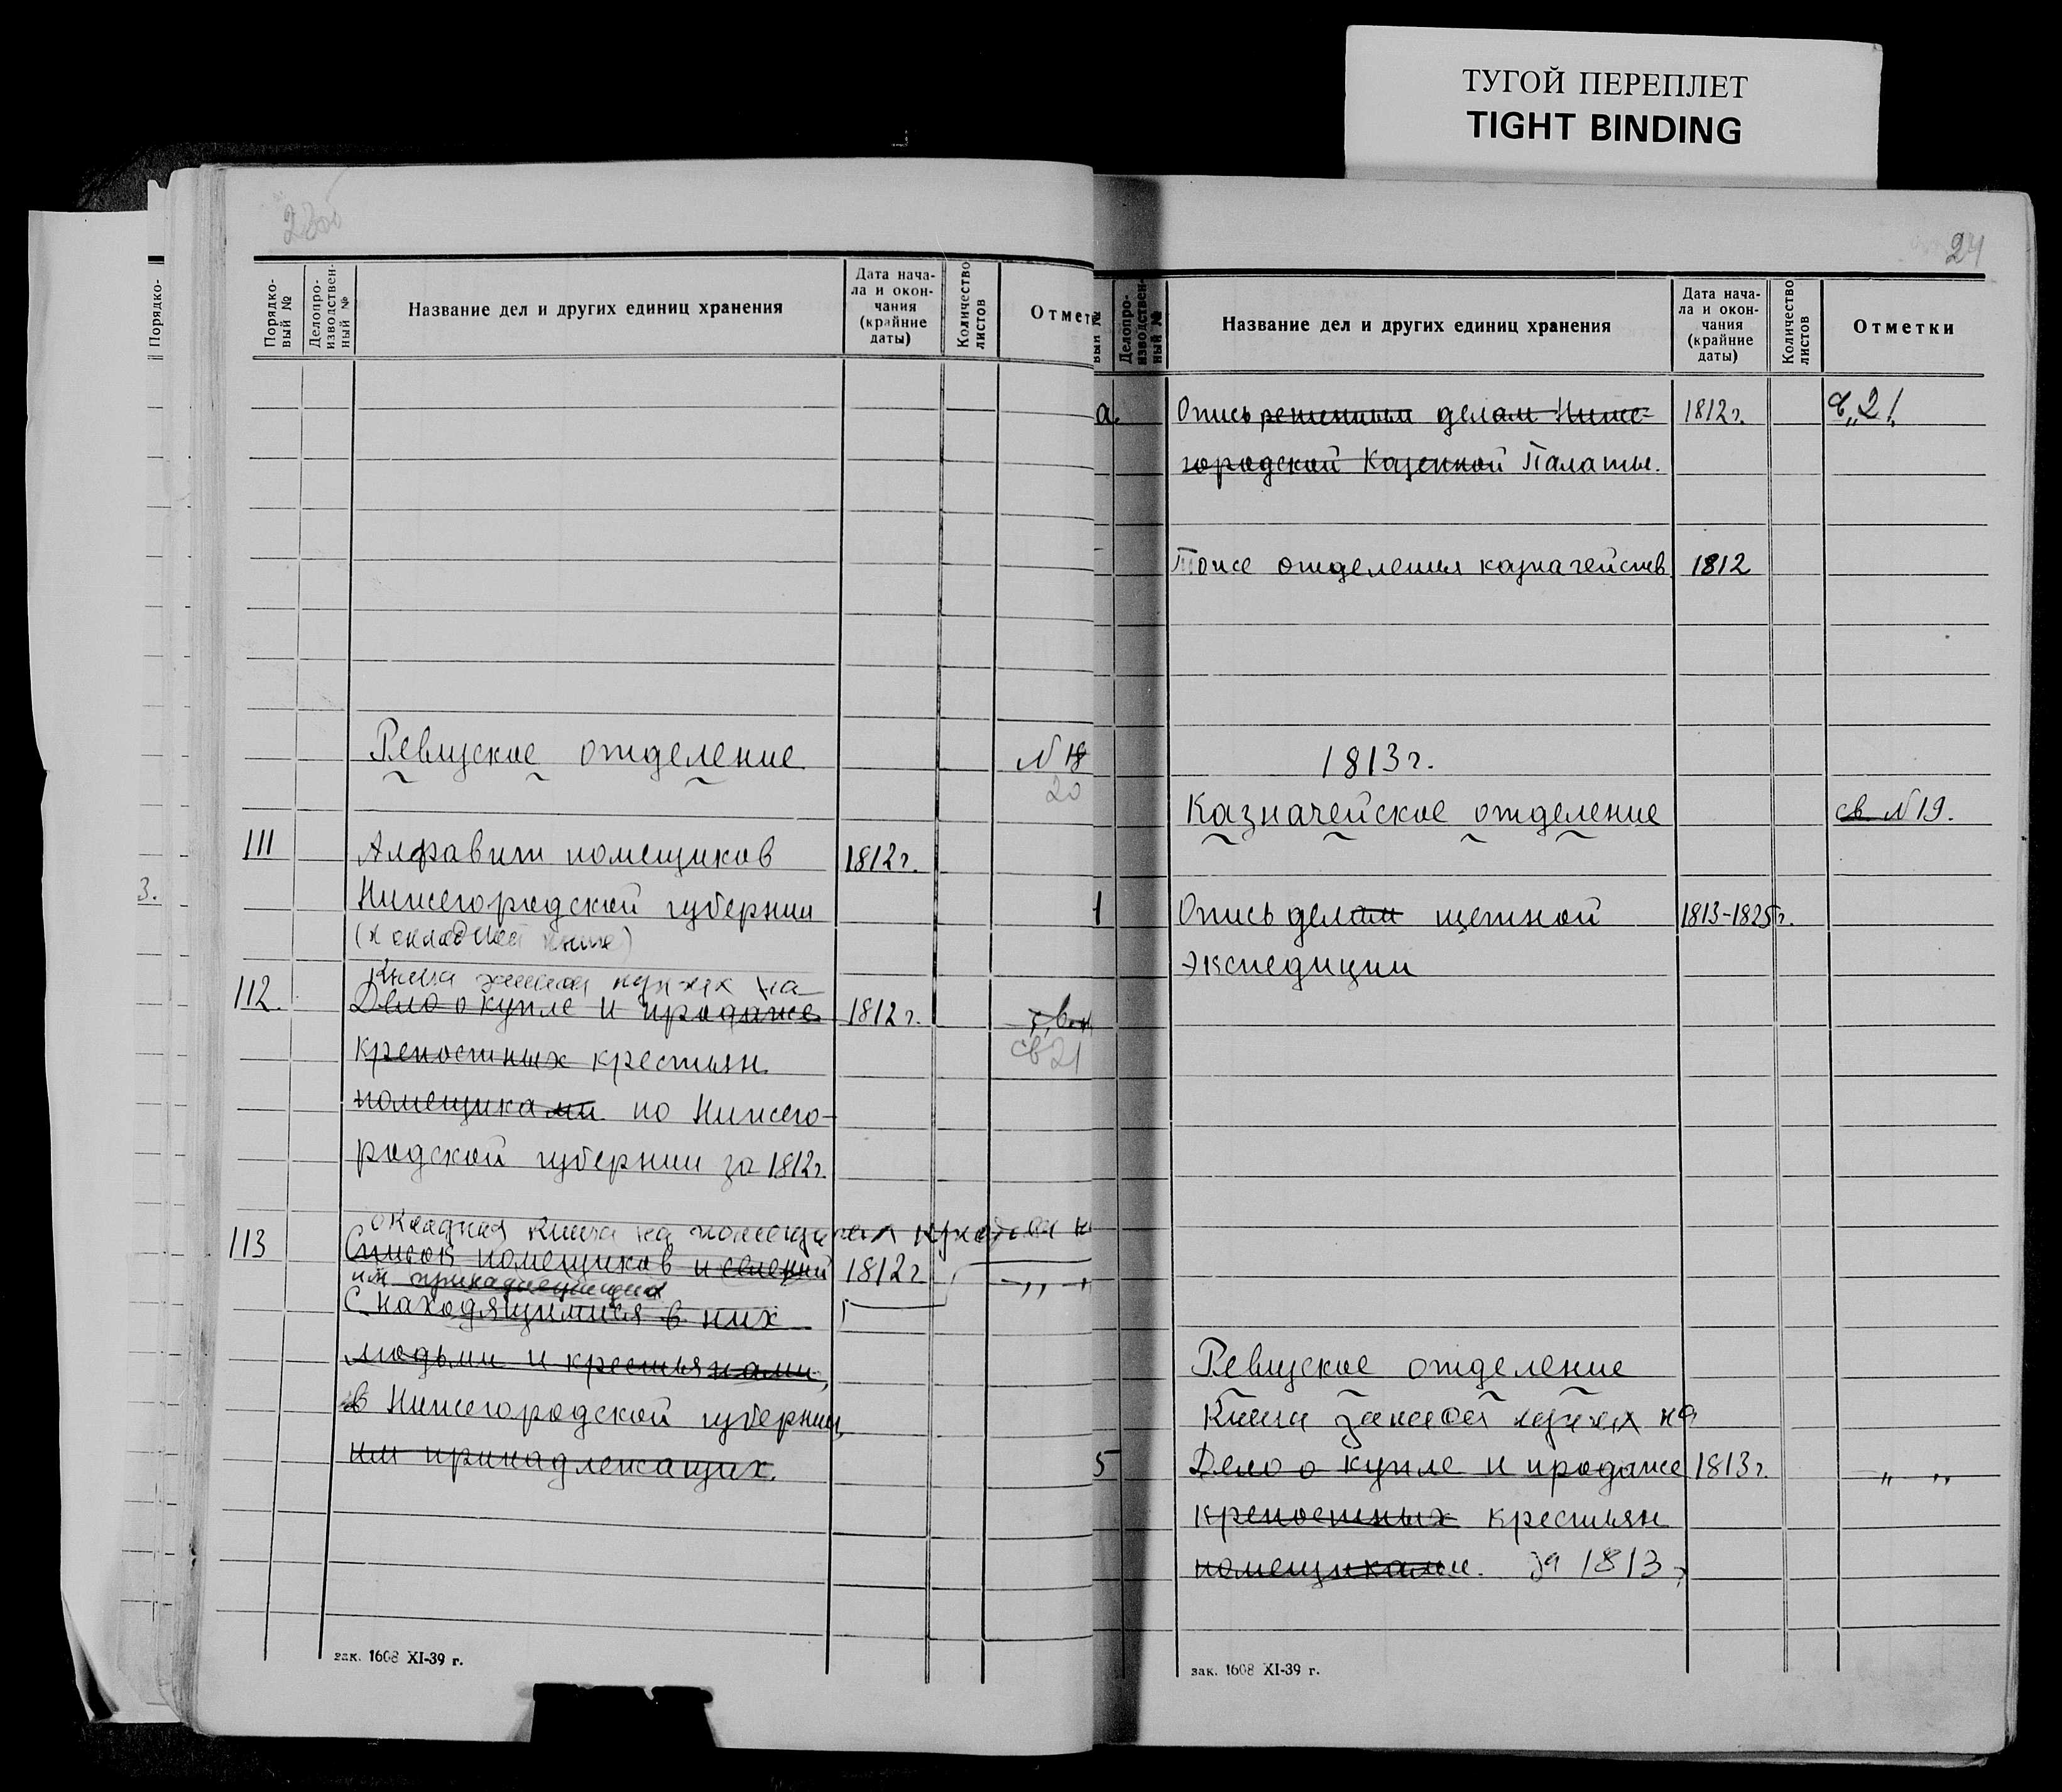 ТУГОЙ ПЕРЕПЛЕТ
TIGHT BINDING
Порядко-
3.
Порядко-
вый №
Делопро-
изводствен-
ный №
Название дел и других единиц хранения
Дата нача-
ла и окон-
чания
(крайние
даты)
Количество
листов
Отмет
Ревизское отделение
N 18
20
111
Алфавит помещиков
1812г.
Нижегородской губернии
(к окладной книге)
Книга на
112.
Дело о купле и продаже
1812г.
крепостных крестьян
св 21
помещиками по Нижего-
родской губернии за 1812г.
окладная книга на
113
Список помещиков и селений
1812г
-„-
им принадлежащих
с находящимися в них
людьми и крестьянами,
в Нижегородской губернии,
им принадлежащих.
зак. 1608 XI-39 г.
24
вый №
Делопро-
изводствен-
ный №
Название дел и других единиц хранения
Дата нача-
ла и окон-
чания
(крайние
даты)
Количество
листов
Отметки
а.
Опись решенным делам Ниже-
1812г.
городской Казенной Палаты.
Тоже отделения казначейств.
1812
1813г.
Казначейское отделение
св N 19.
1
Опись делам щетной
1813-1825г.
экспедиции
Ревизское отделение
Книга на
5
Дело о купле и продаже
1813г.
„ „
крепостных крестьян
помещиками. за 1813
зак. 1608 XI-39 г.